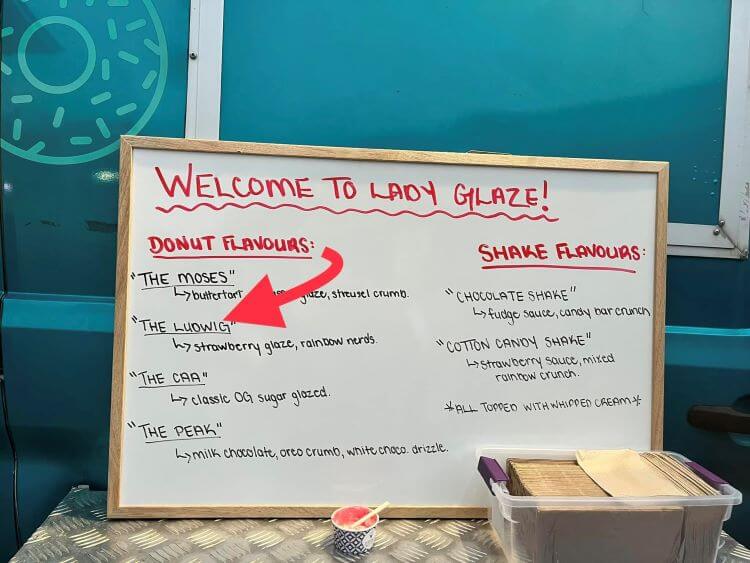 WELCOME TO LADY GLAZE!
DONUT FLAVOURS:
"THE MOSES"
↳buttertart glaze, streusel crumb.
"THE LUDWIG"
↳strawberry glaze, rainbow nerds.
"THE CAA"
↳classic OG sugar glazed.
"THE PEAK"
↳milk chocolate, oreo crumb, white choco. drizzle.
SHAKE FLAVOURS:
"CHOCOLATE SHAKE"
↳fudge sauce, candy bar crunch
"COTTON CANDY SHAKE"
↳strawberry sauce, mixed
rainbow crunch.
*ALL TOPPED WITH WHIPPED CREAM*